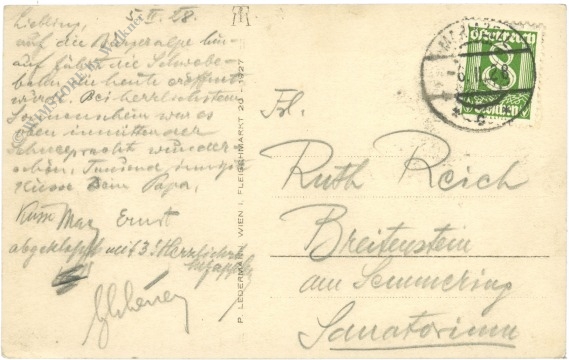 5. II. 28.
Liebling,
auf die Bürgeralpe hin-
auf führt die Schwebe-
bahn, die heute eröffnet
wird. Bei herrlichstem
Sonnenschein war es
oben inmitten der
Schneepracht wunder-
schön. Tausend innige
Küsse Dein Papa,
Kuss Max Ernst
abgeklapft mit 3! Herzlichst
P. LEDERMANN, WIEN I. FLEISCHMARKT 20 - 1927
8
GROSCHEN
Frl.
Ruth Reich
Breitenstein
am Semmering
Sanatorium